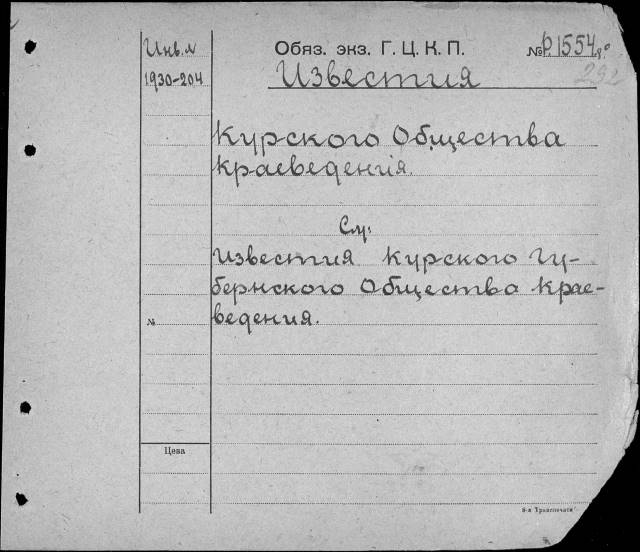 Инв. №
1930-204
Обяз. экз. Г. Ц. К. П.
№ Р1554
Известия
292
Курского Общества
Краеведения.
См:
Известия Курского Гу-
бернского Общества Крае-
ведения.
№
Цена
8-я Транспечати